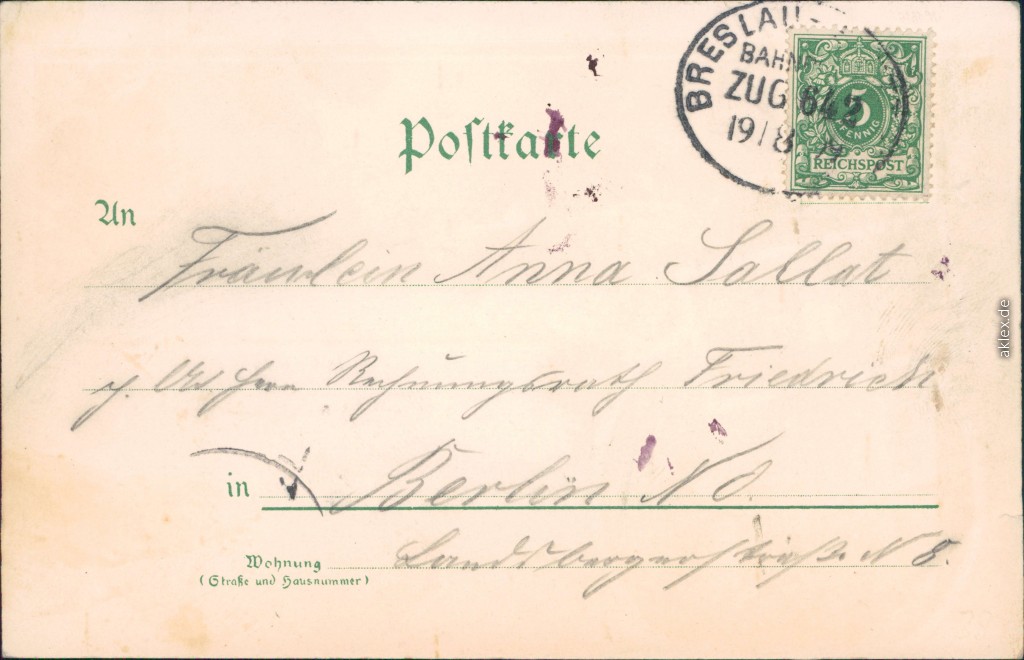 BRESLAU
BAHN
ZUG 842
19/8 99
5
PFENNIG
REICHSPOST
Postkarte
An
Fräulein Anna Sallat
Herrn Rechnungsrath Friedrich
in Berlin NO.
Wohnung Landsbergerstraße N 8.
(Straße und Hausnummer)
aklex.de